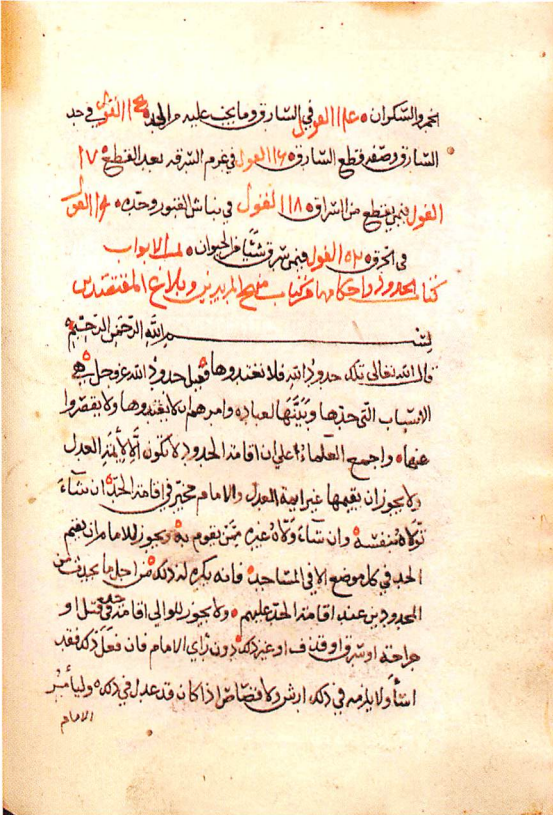 الخمر والسكران ه ١٤ القول في السارق وما يجب عليه من الحد ١٥ القول في حد
السارق وصفه قطع السارق ه ١٦ القول في غرم السرقه بعد القطع ١٧
القول فيمن يقطع من السراق ه ١٨ القول في نباش القبور وحده ه ١٩ القول
في الحرق ٢٠ القول فيمن سرق شيئا من الحيوان ه الابواب
كتاب الحدود واحكامها من كتاب منهج المريدين وبلاغ المقتصدين
بسم الله الرحمن الرحيم
قال الله تعالى تلك حدود الله فلا تعتدوها فقيل حدود الله عز وجل هي
الاسباب التي حدها وبينها لعباده وامرهم ان لا يعتدوها ولا يقصروا
عنها ه واجمع العلماء على ان اقامة الحدود لا تكون الا لأيمة العدل
ولا يجوز ان يقيمها غير ايمة العدل والامام مخير في اقامة الحد ان شآء
تولاه بنفسه وان شآء ولاه غيره ممن يقوم به ه ويجوز للامام ان يقيم
الحد في كل موضع الا في المساجد ه فانه يكره له ذلك من اجل ما يحدث من
المحدودين عند اقامة الحد عليهم ه ولا يجوز للوالي اقامة حد في قتل او
جراحة او سرق او قذف او غير ذلك دون راي الامام فان فعل ذلك فقد
اسآ ولا يلزمه في ذلك ارش ولا قصاص اذا كان قد عدل في ذلك ه وليأمر
الامام